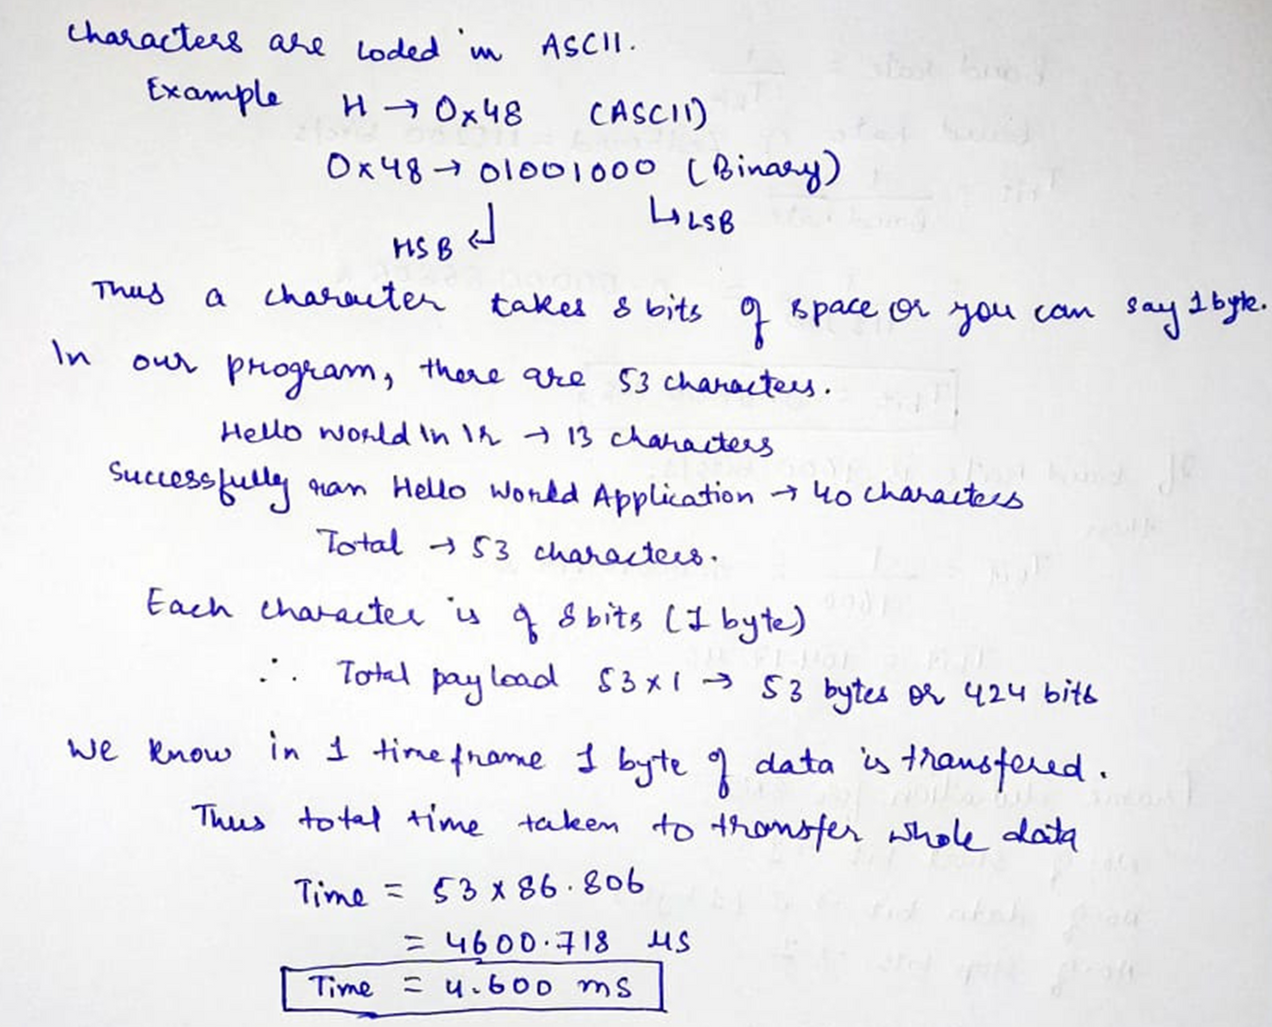 Characters are coded in ASCII.
Example H → 0x48 (ASCII)
0x48 → 01001000 (Binary)
↳ LSB
MSB ↲
Thus a character takes 8 bits of space or you can say 1 byte.
In our program, there are 53 characters.
Hello World In \r → 13 characters
Successfully ran Hello World Application → 40 characters
Total → 53 characters.
Each character is of 8 bits (1 byte)
∴ Total payload 53 x 1 → 53 bytes or 424 bits
We know in 1 timeframe 1 byte of data is transfered.
Thus total time taken to transfer whole data
Time = 53 x 86.806
= 4600.718 μs
Time = 4.600 ms